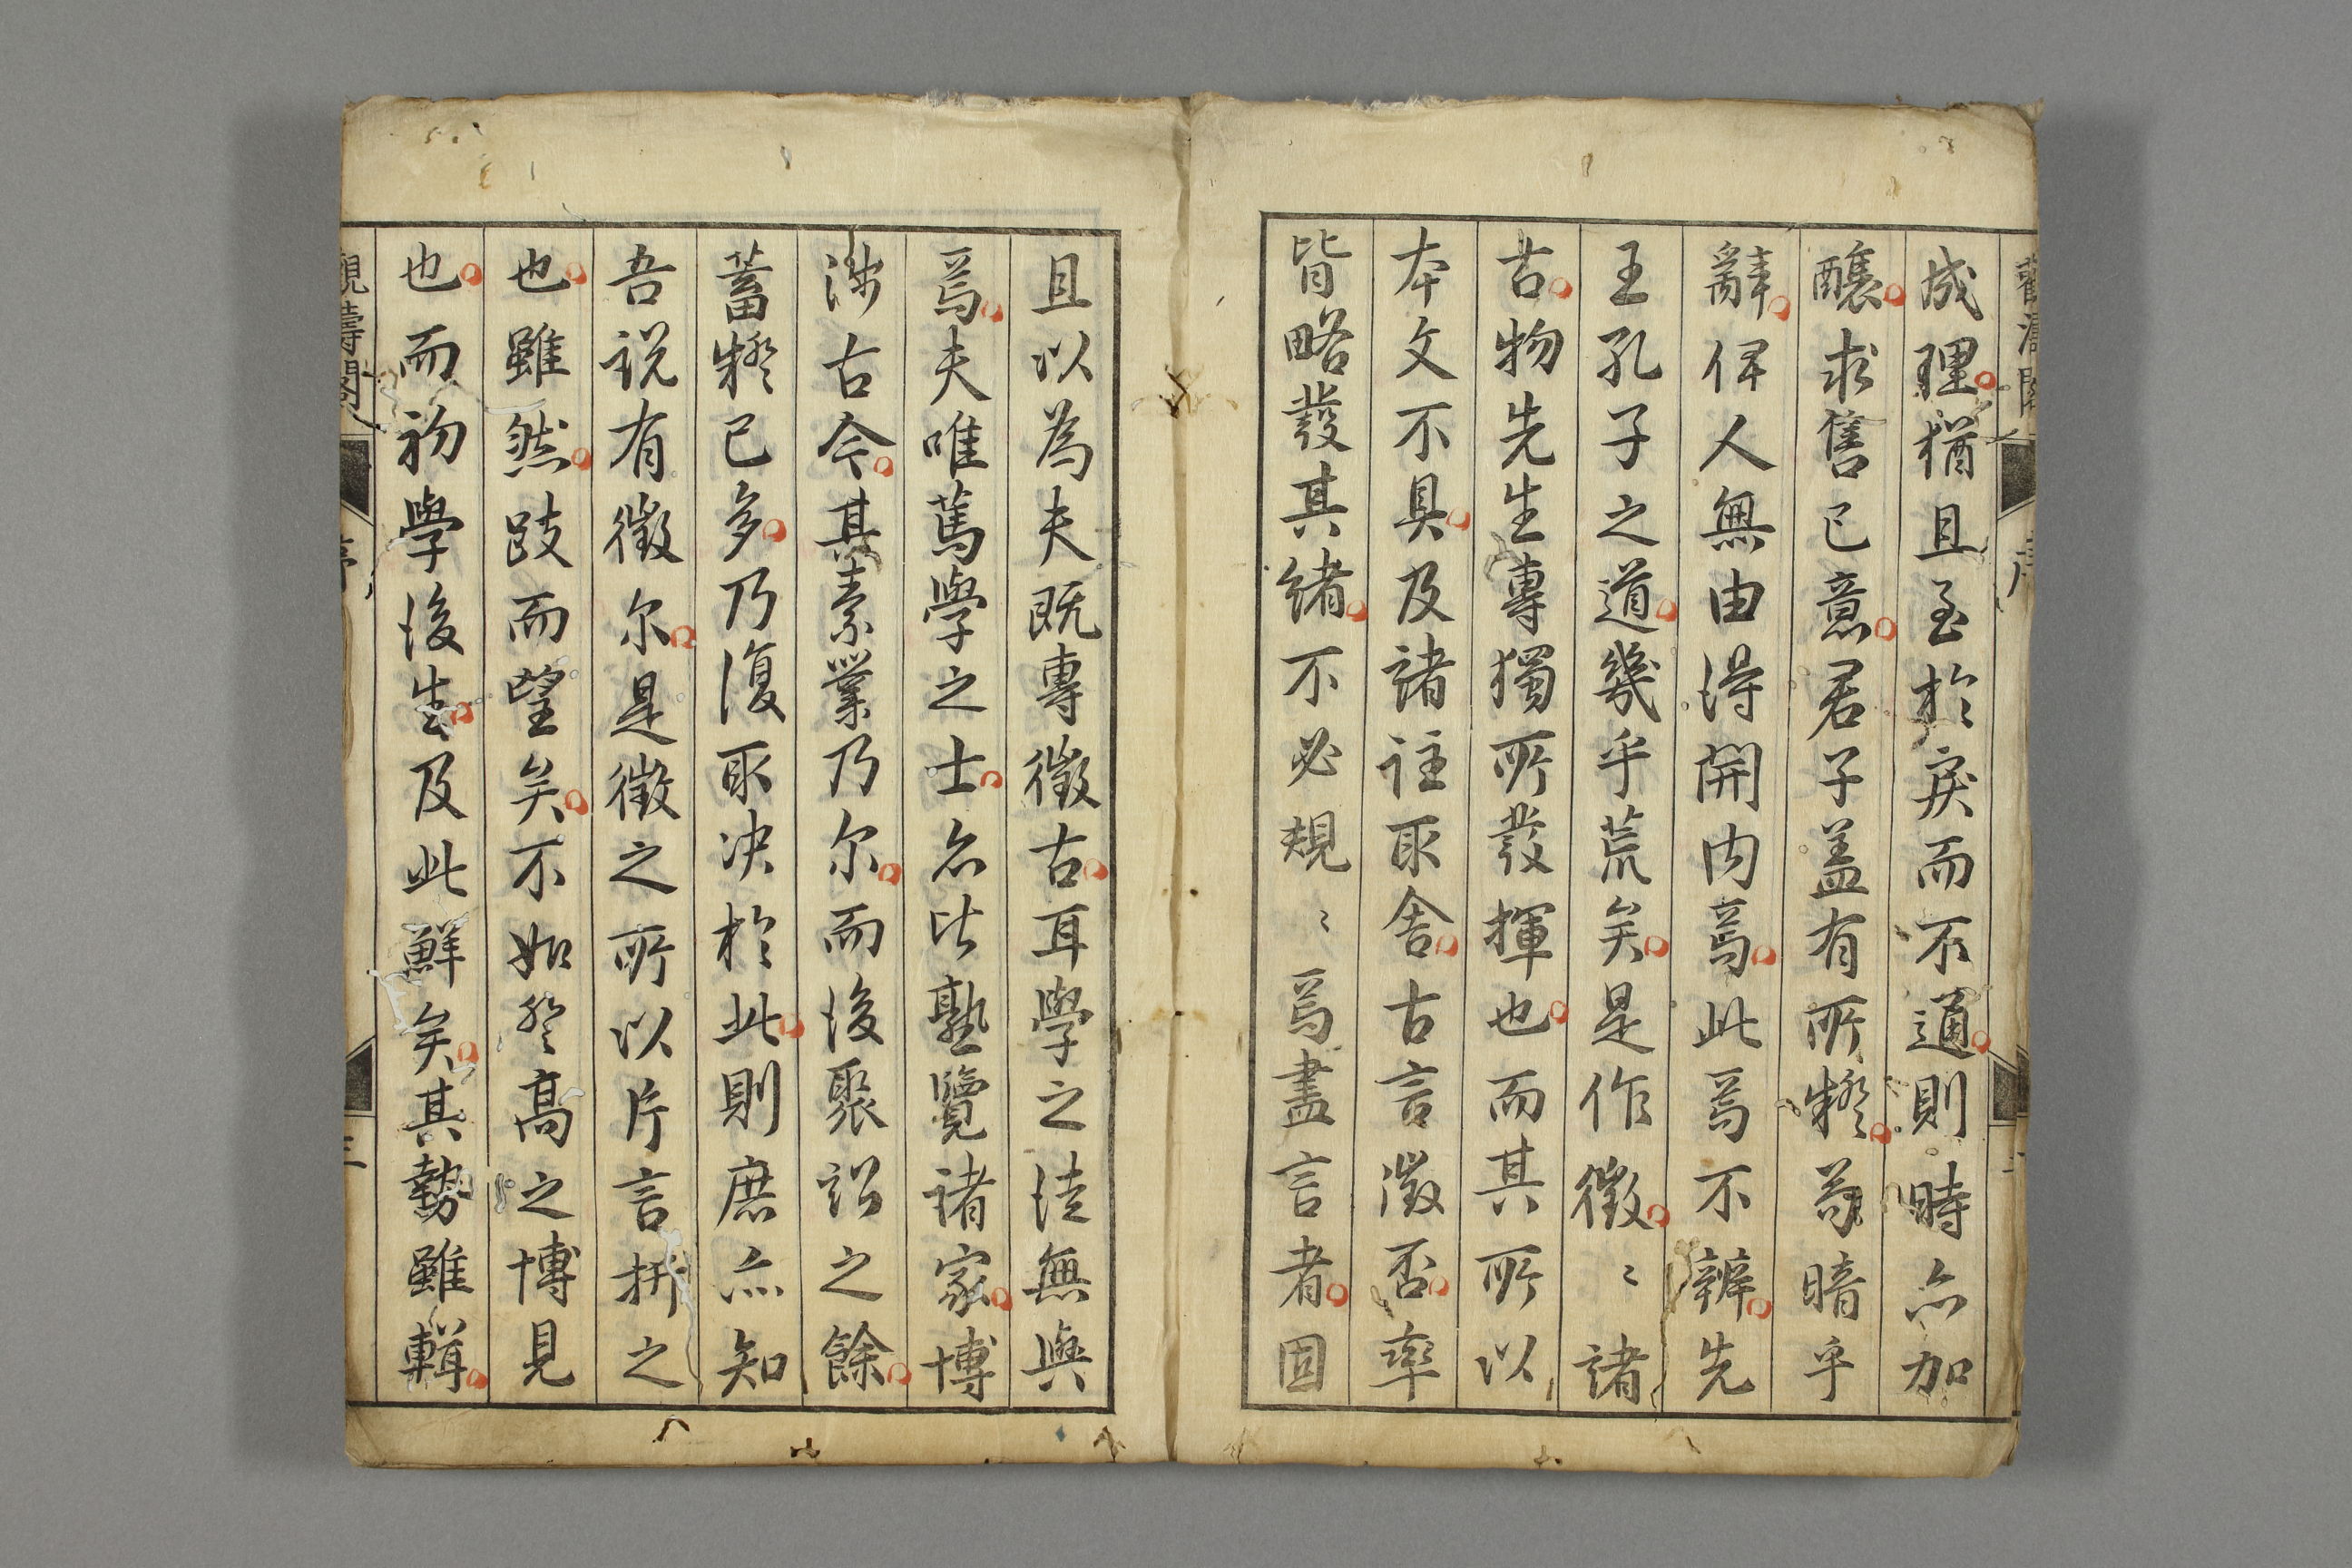 成理猶且至於戾而不通則時亦加
釀求售己意君子蓋有所疑苟暗乎
辭俾人無由得開內焉此焉不辨先
王孔子之道幾乎荒矣是作徵〻諸
古物先生專獨所發揮也而其所以
本文不具及諸註取舍古言徵否率
皆略發其緒不必規〻焉盡言者固
且以為夫既專徵古耳學之徒無與
焉夫唯篤學之士必能熟覽諸家博
涉古今其素業乃尔而後聚訟之餘
蓄疑已多乃復取决於此則庶亦知
吾説有徵尔是徵之所以片言折之
也雖然跂而望矣不如登高之博見
也而初學後生及此鮮矣其勢雖輯
觀濤閣
序
三